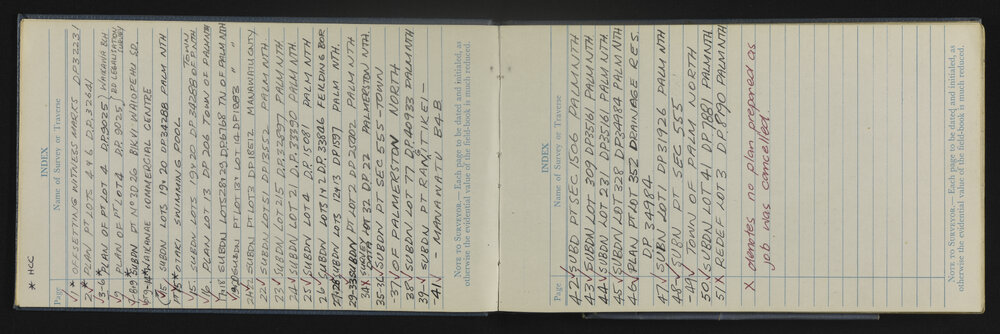 * HCC
INDEX
Page Name of Survey or Traverse
1 * OFFSETTING WATAYEES MARKS DP 32231
2 * PLAN PT LOTS 4 & 6 D.P. 32641
3-6 * PLAN OF PT LOT 4 DP 9025 WAIKAWA BCH
7 * PLAN OF PT LOT 4 DP. 9025, RD LEGALISATION SURVEY
8-9 * SUBDN PT Nº 3D 2G BLK VI WAIOPEHU S.D.
WAIKANAE COMMERCIAL CENTRE
15 SUBDN LOTS 19-20 DP34288 PALM NTH
OTAKI SWIMMING POOL
15 SUBDN LOTS 19.20 DP 34288 TOWN OF P. NTH
16 PLAN LOT 13 DP 206 TOWN OF PALM NTH
17-18 SUBDN LOTS 28 & 29 DP 6768 TN OF PALM NTH
SUBDN PT LOT 13, LOT 14 DP 10883 "
21 SUBDN PT LOT 3 DP 18612 MANAWATU CNTY
22 SUBDN LOT 51 DP 13552 PALM NTH
23 SUBDN LOT 215 DP. 33897 PALM NTH
24 SUBDN LOT 2 D.P. 33390 PALM NTH
25 SUBDN LOT 4 D.P. 1C081 PALM NTH
26 SUBDN LOTS 1 & 2 D.P. 33846 FEILDING BOR
27-28 SUBDN LOTS 12 & 13 DP 1597 PALM NTH.
29-33 SUBDN PT LOT 2 DP 25202 PALM NTH
34 X SURVEY LOT 32 DP 22 PALMERSTON NTH.
35-36 SUBDN PT SEC 555 - TOWN
-37 OF PALMERSTON NORTH
38 SUBDN LOT 77 DP. 40933 PALM NTH
39- SUBDN PT RANGITIKEI -
41 - MANAWATU B4B
NOTE TO SURVEYOR.—Each page to be dated and initialed, as
otherwise the evidential value of the field-book is much reduced.
INDEX
Page. Name of Survey or Traverse.
42 SUBD PT SEC 1506 PALM NTH
43 SUBDN LOT 309 DP35161 PALM NTH
44 SUBDN LOT 231 DP35161 PALM NTH
45 SUBDN LOT 328 DP34984 PALM NTH
46 PLAN PT LOT 352 DRAINAGE RES.
DP 34984
47 SUBN LOT 1 DP 31926 PALM NTH
48 SUBN PT SEC 555
-49 TOWN OF PALM NORTH
50 SUBDN LOT 41 DP 7881 PALM NTH.
51 X REDEF LOT 3 DP 7890 PALM NTH
X denotes no plan prepared as
job was cancelled.
NOTE TO SURVEYOR.—Each page to be dated and initialed, as
otherwise the evidential value of the field-book is much reduced.